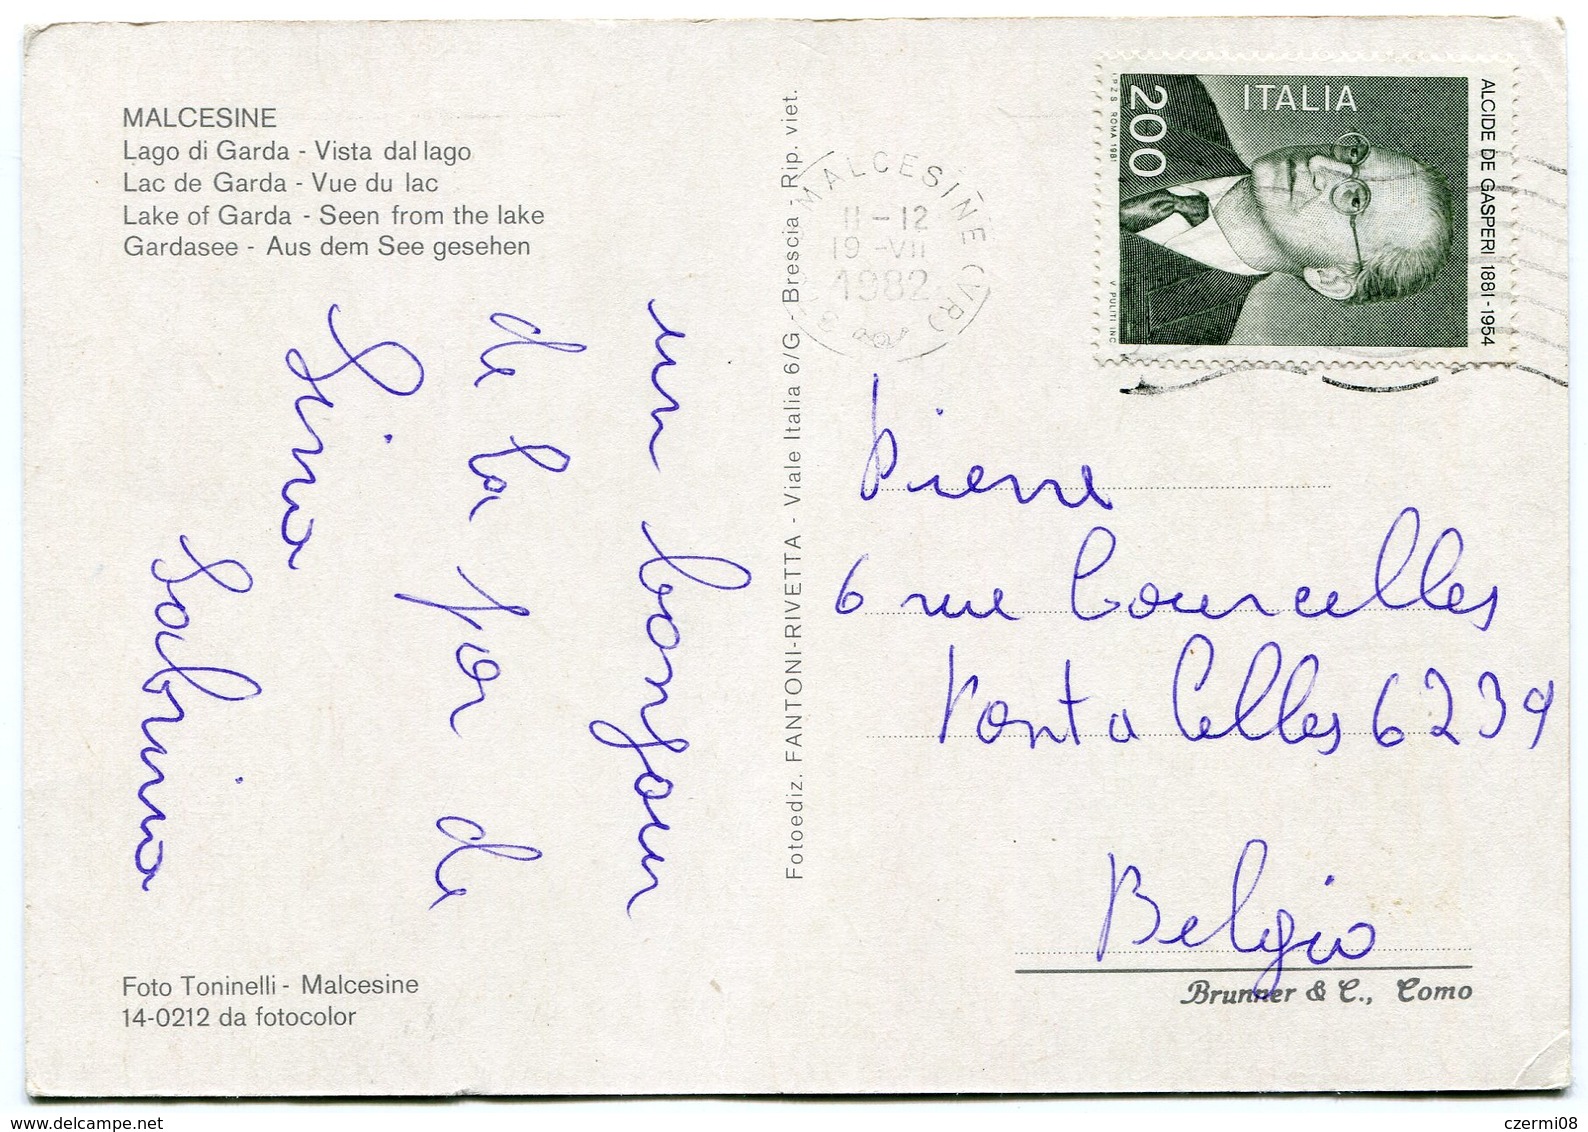 MALCESINE
Lago di Garda - Vista dal lago
Lac de Garda - Vue du lac
Lake of Garda - Seen from the lake
Gardasee - Aus dem See gesehen
un bonjour
de la par de
Gina
Sabrina
Foto Toninelli - Malcesine
14-0212 da fotocolor
Fotoediz. FANTONI-RIVETTA - Viale Italia 6/G - Brescia - Rip. viet.
MALCESINE (VR)
11-12
19-VII
1982
ITALIA
200
ALCIDE DE GASPERI 1881-1954
I.P.Z.S. ROMA 1981
V. PULITI INC.
Pierre
6 rue Courcelles
Pont a Celles 6239
Belgio
Brunner & C., Como
czermi08
www.delcampe.net